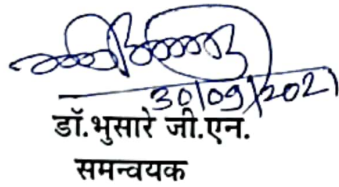 30/09/2021
डॉ.भुसारे जी.एन.
समन्वयक